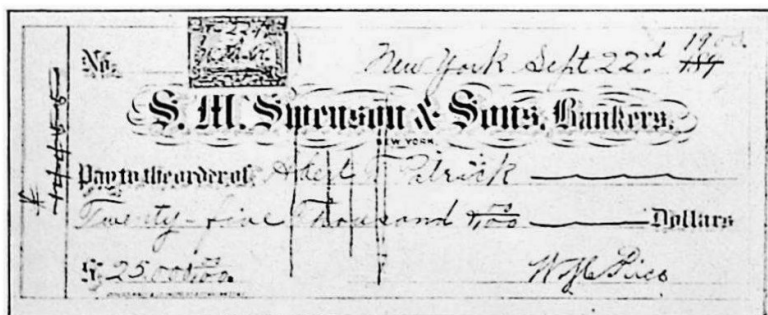 No. New York Sept 22nd 1900
S. M. Swenson & Sons, Bankers,
NEW YORK.
Pay to the order of Abert T. Patrick
Twenty-five Thousand 00/100 Dollars
$25000 00/100. W M Rice